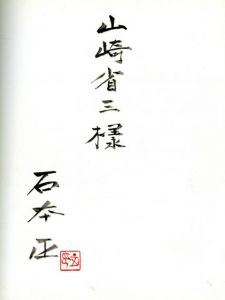 山崎省三様
石本正